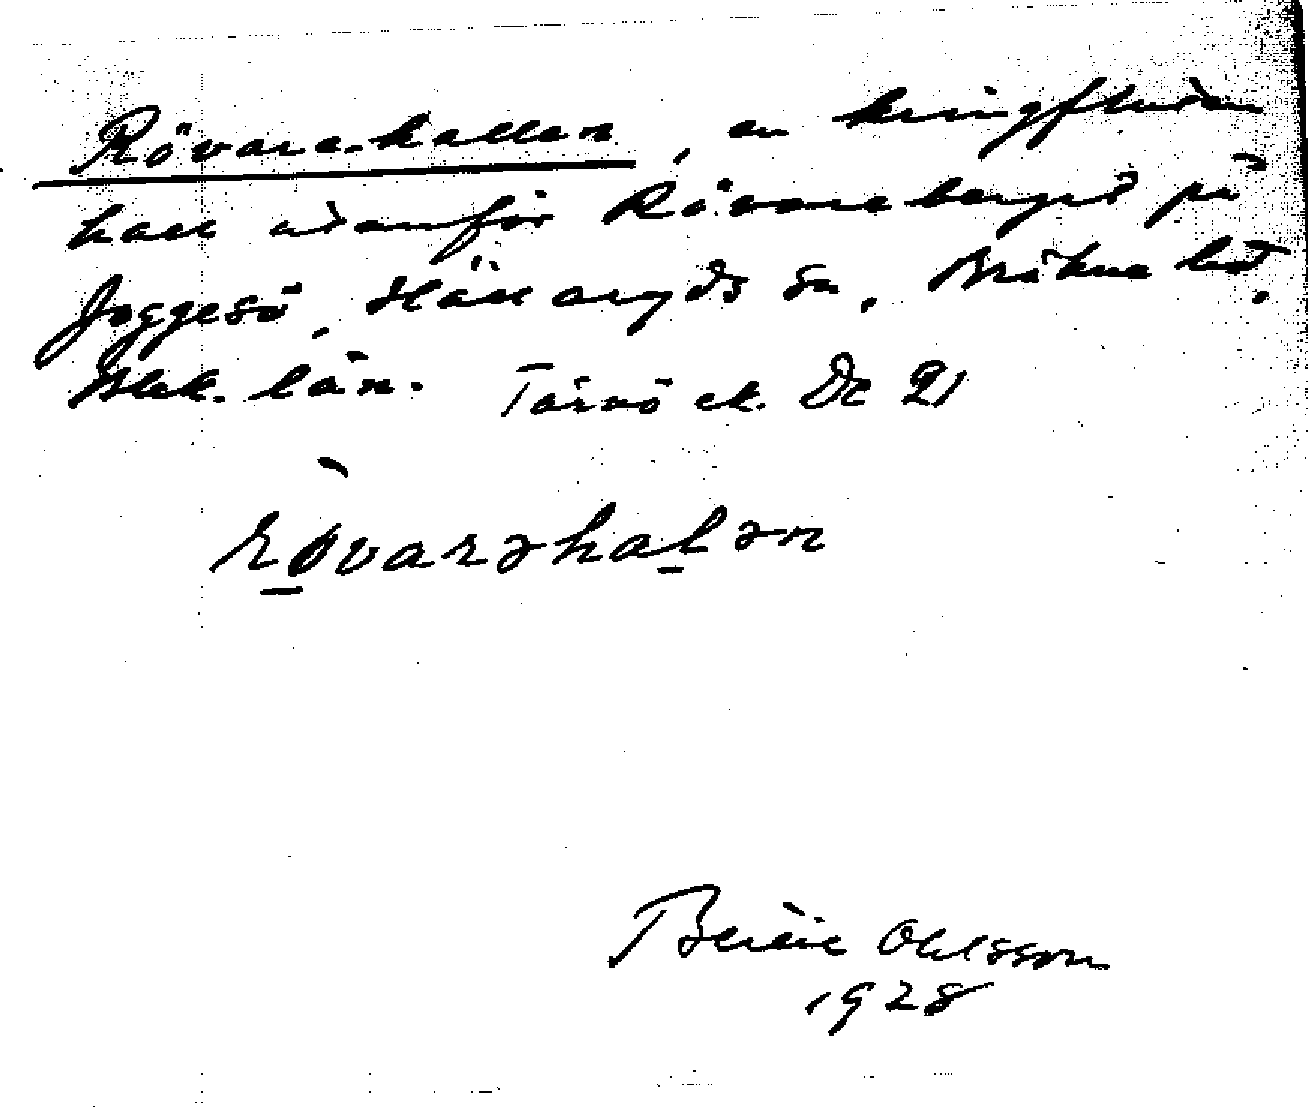 Rövarehallen, en kringfluten
hall utanför Rövareberget på
Joggesö, Hällaryds sn, Bräkne hd,
Blek. län. Tärnö ek. Dc 21
rövarəhalən
Ohlsson
1928